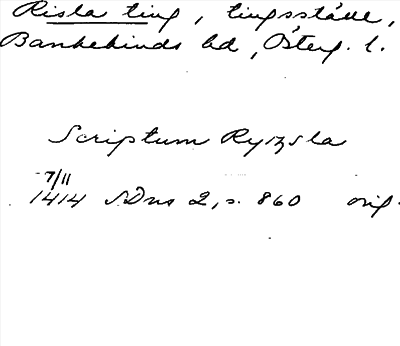 Risla ting, tingsställe,
Bankekinds hd, Österg. l.
Scriptum Ryzsla
7/11
1414 SDns 2, s. 860 orig.